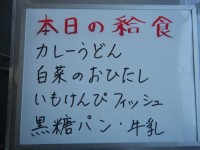 本日の給食
カレーうどん
白菜のおひたし
いもけんぴフィッシュ
黒糖パン・牛乳